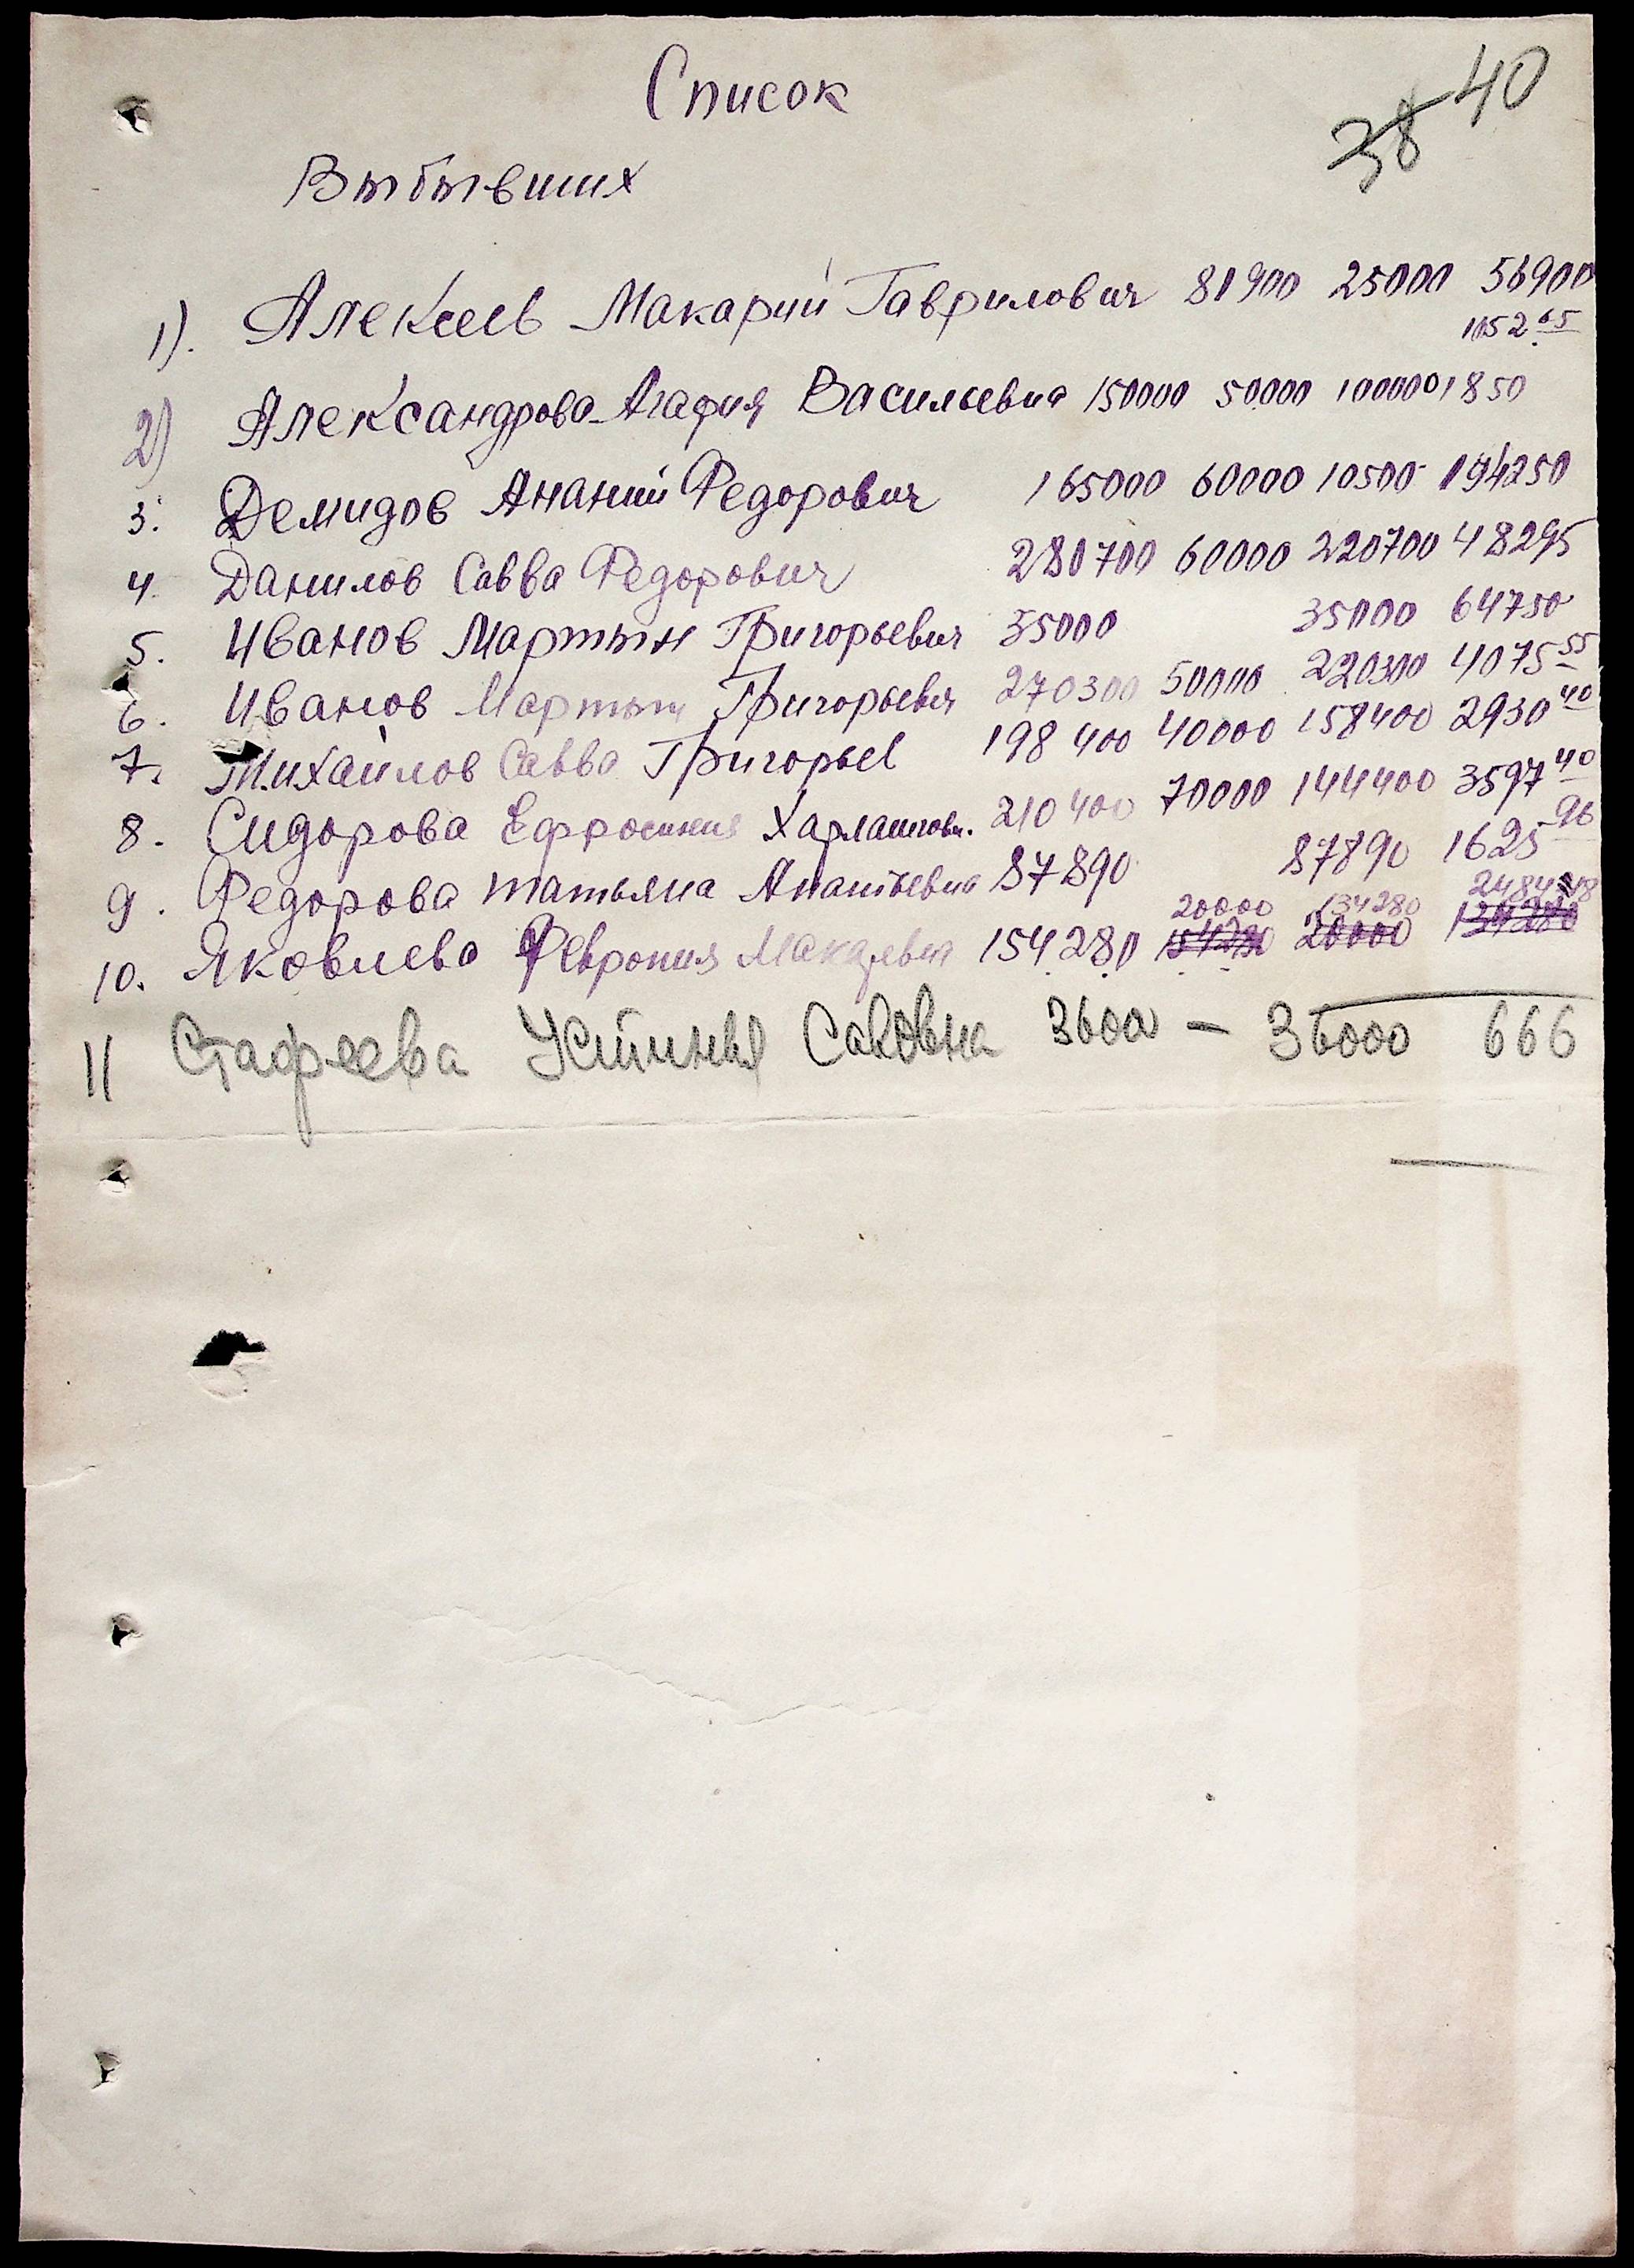 Список
38 40
Выбывших
1). Алексеев Макарий Гаврилович 81900 25000 56900
1052 65
2) Александрова Агафия Васильевна 150000 50000 100000 1850
3. Демидов Ананий Федорович 165000 60000 10500 194250
4. Данилов Савва Федорович 280700 60000 220700 48295
5. Иванов Мартын Григорьевич 35000 35000 64750
6. Иванов Мартын Григорьевич 270300 50000 220300 4075 55
7. Михайлов Савва Григорьев 198400 40000 158400 2930 40
8. Сидорова Ефросиния Харлампов. 210400 70000 144400 3597 40
9. Федорова Татьяна Анатьевна 87890 87890 1625 96
20000 134280 2484 18
10. Яковлева Феврония Макаревна 154280 154280 20000 134280
11 Стафеева Устинья Савовна 36000 — 36000 666